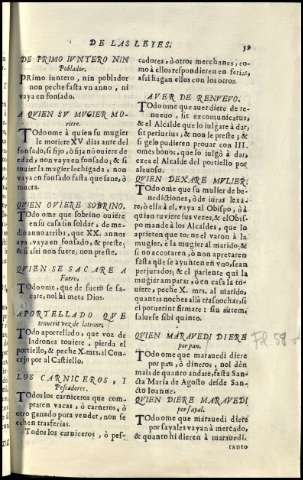 DE LAS LEYES.
DE PRIMO IVNTERO NIN
Poblador.
PRimo iuntero, nin poblador
non peche fasta vn anno, ni
vaya en fonsado.
A QUIEN SV MUGIER MO-
riere.
Todo ome à quien su mugier
le moriere XV dias ante del
fonsado, si fijo, ò fija nõ ouiere de
edad, non vaya en fonsado, & si
touier la mugier lechigada, non
vaya en fonsado fasta que sane, ò
mora.
QUIEN OVIERE SOBRINO.
Todo ome que sobrino ouiere
en su casa sin soldar, de me-
diano
vaya en fonsado, & peche,
& si asi non fuere, non preste.
QUIEN SE SACARE A
Todo ome, que de fuero se sa-
care, nol hi meta Dios.
APORTELLADO QUE
touiere voz de
Todo aportellado, que voz de
ladrones touiere, pierda el
portiello, & peche X. mrs. al Con-
cejo por al Castiello.
LOS CARNICEROS, I
Pescadores.
Todos los carniceros que com-
praren vacas, ò carneros, ò
otro ganado para vender, non se
echen trasferias.
Todos los carniceros, ò pes-
cadores, ò otros merchanes, co-
mo à ellos respondieren en ferias,
assi fagan ellos con los otros.
AVER DE RENUEVO.
Todo ome que auer diere de re-
nueuo, sit excomunicatus,
& el Alcalde que lo iulgare à dar,
sit periurius, & non le preste; &
si gelo pudieren prouar con III.
omes bonos, que lo iulgò à dar,
exca el Alcalde del portiello por
aleuoso.
QUIEN DEXARE MVLIER.
Todo ome que su mulier de be-
nediciones, ò de iuras lexa-
re, ò ella à el, vaya al Obispo, ò à
quien touiere sus vezes, & el Obis-
po mande à los Alcaldes, que lo
aprieten que torne el varon à la
mugier, è la mugier al marido; &
si no accotaren, ò non apretaren
fasta que se ayunten en vno sean
perjurados; & el pariente qui la
mugier amparare, ò en casa la to-
uiere, peche X. mrs. al marido
quantas noches allà trasnochare, si
el portiere firmare: sin autem,
salue se sibi quinto.
QUIEN MARAVEDI DIERE
por pan.
Todo ome que marauedi diere
por pan, ò dineros, nol den
mais de quanto andare, fasta San-
cta Maria de Agosto desde San-
cto Ioanne.
QUIEN DIERE MARAVEDI
por sayal.
Todo ome que marauedi diere
por sayales vayan à mercado,
& quanto hi dieren à marauedi.